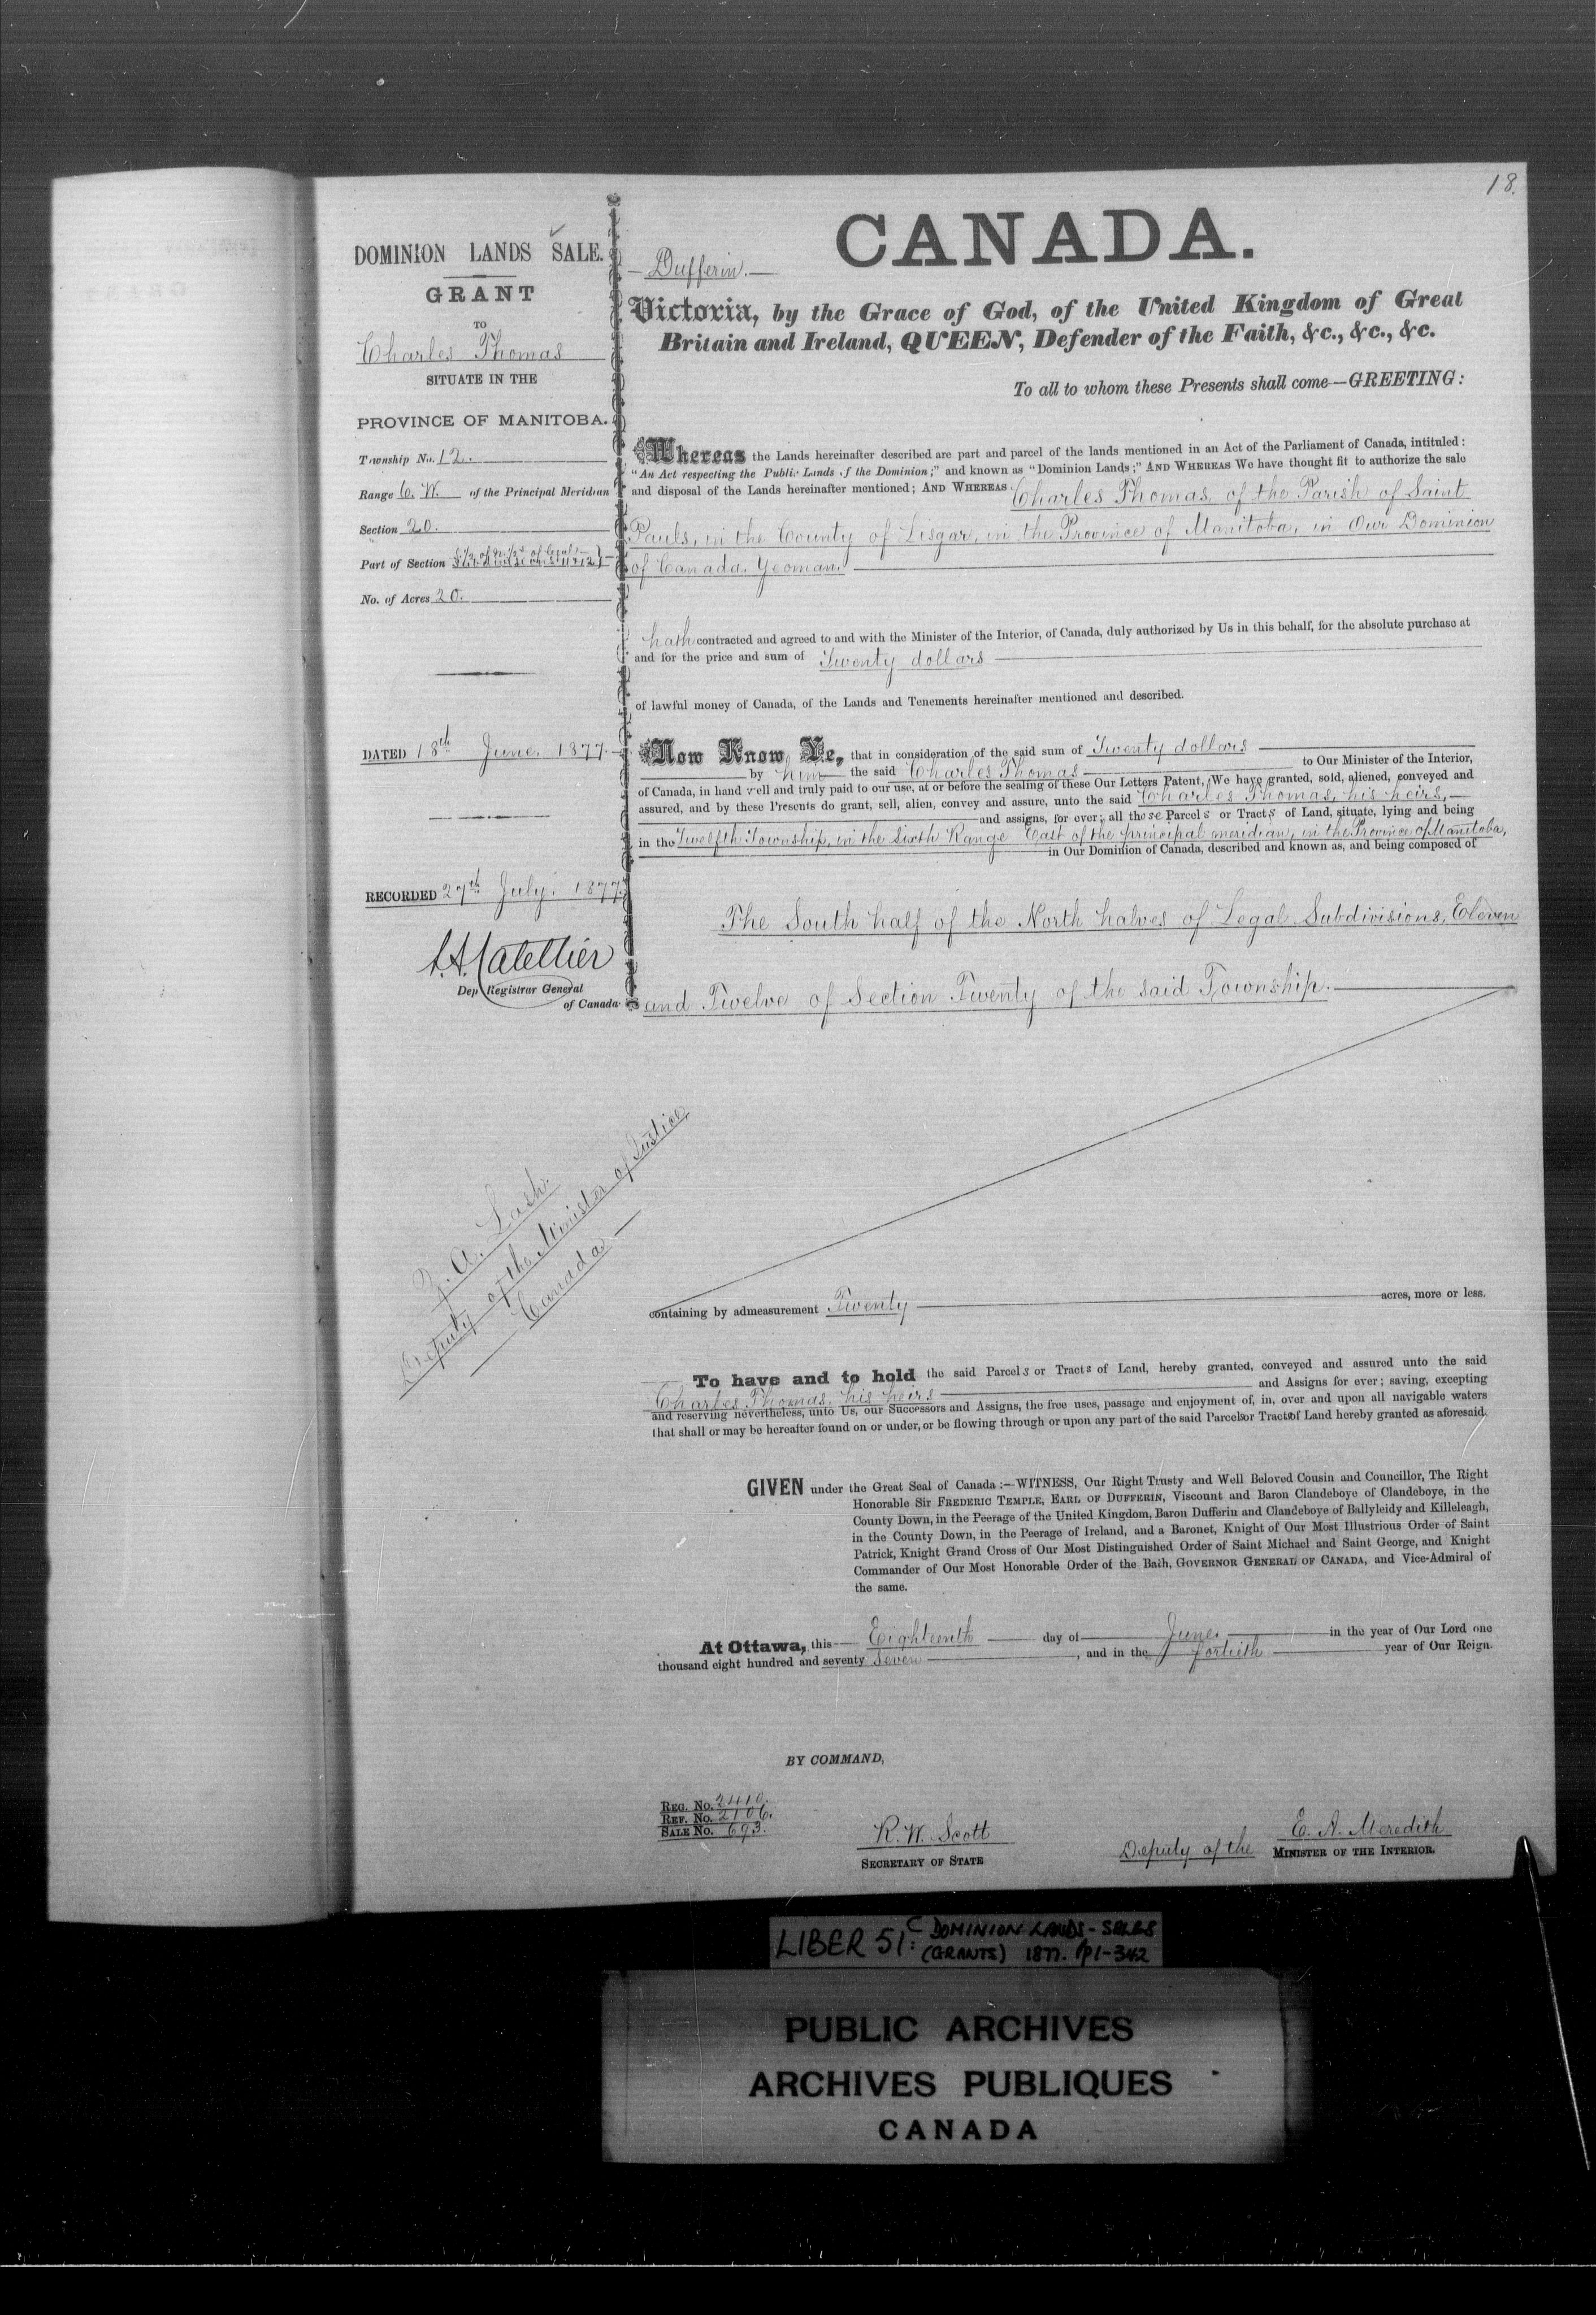 18.
DOMINION LANDS SALE.
GRANT
TO
Charles Thomas
SITUATE IN THE
PROVINCE OF MANITOBA.
Township No. 12.
Range 6. W. of the Principal Meridian
Section 20.
Part of Section
No. of Acres 20.
DATED 18th June. 1877.
RECORDED 27th July. 1877.
Dep Registrar General
of Canada
Z. A. Lash.
Deputy of the Minister of Justice
Canada
CANADA.
Dufferin.
Victoria, by the Grace of God, of the United Kingdom of Great
Britain and Ireland, QUEEN, Defender of the Faith, &c., &c., &c.
To all to whom these Presents shall come—GREETING:
Whereas the Lands hereinafter described are part and parcel of the lands mentioned in an Act of the Parliament of Canada, intituled:
"An Act respecting the Public Lands of the Dominion;" and known as "Dominion Lands;" AND WHEREAS We have thought fit to authorize the sale
and disposal of the Lands hereinafter mentioned; AND WHEREAS Charles Thomas, of the Parish of Saint
Pauls, in the County of Lisgar, in the Province of Manitoba, in Our Dominion
of Canada. Yeoman.
hath contracted and agreed to and with the Minister of the Interior, of Canada, duly authorized by Us in this behalf, for the absolute purchase at
and for the price and sum of Twenty dollars
of lawful money of Canada, of the Lands and Tenements hereinafter mentioned and described.
Now Know Ye, that in consideration of the said sum of Twenty dollars
by him the said Charles Thomas to Our Minister of the Interior,
of Canada, in hand well and truly paid to our use, at or before the sealing of these Our Letters Patent, We have granted, sold, aliened, conveyed and
assured, and by these Presents do grant, sell, alien, convey and assure, unto the said Charles Thomas, his heirs,
and assigns, for ever; all those Parcels or Tracts of Land, situate, lying and being
in the Twelfth Township, in the Sixth Range East of the principal meridian, in the Province of Manitoba,
in Our Dominion of Canada, described and known as, and being composed of
The South half of the North halves of Legal Subdivisions, Eleven
and Twelve of Section Twenty of the said Township.
containing by admeasurement Twenty acres, more or less.
To have and to hold the said Parcels or Tracts of Land, hereby granted, conveyed and assured unto the said
Charles Thomas, his heirs and Assigns for ever; saving, excepting
and reserving nevertheless, unto Us, our Successors and Assigns, the free uses, passage and enjoyment of, in, over and upon all navigable waters
that shall or may be hereafter found on or under, or be flowing through or upon any part of the said Parcels or Tracts of Land hereby granted as aforesaid.
GIVEN under the Great Seal of Canada:—WITNESS, Our Right Trusty and Well Beloved Cousin and Councillor, The Right
Honorable Sir FREDERIC TEMPLE, EARL OF DUFFERIN, Viscount and Baron Clandeboye of Clandeboye, in the
County Down, in the Peerage of the United Kingdom, Baron Dufferin and Clandeboye of Ballyleidy and Killeleagh,
in the County Down, in the Peerage of Ireland, and a Baronet, Knight of Our Most Illustrious Order of Saint
Patrick, Knight Grand Cross of Our Most Distinguished Order of Saint Michael and Saint George, and Knight
Commander of Our Most Honorable Order of the Bath, GOVERNOR GENERAL OF CANADA, and Vice-Admiral of
the same.
At Ottawa, this Eighteenth day of June in the year of Our Lord one
thousand eight hundred and seventy seven, and in the fortieth year of Our Reign.
BY COMMAND,
REG. No. 2410.
REF. No. 2106.
SALE No. 693.
R. W. Scott
SECRETARY OF STATE
E. A. Meredith
Deputy of the MINISTER OF THE INTERIOR.
LIBER 51C: DOMINION LANDS - SALES
(GRANTS) 1877. pp1-342
PUBLIC ARCHIVES
ARCHIVES PUBLIQUES
CANADA